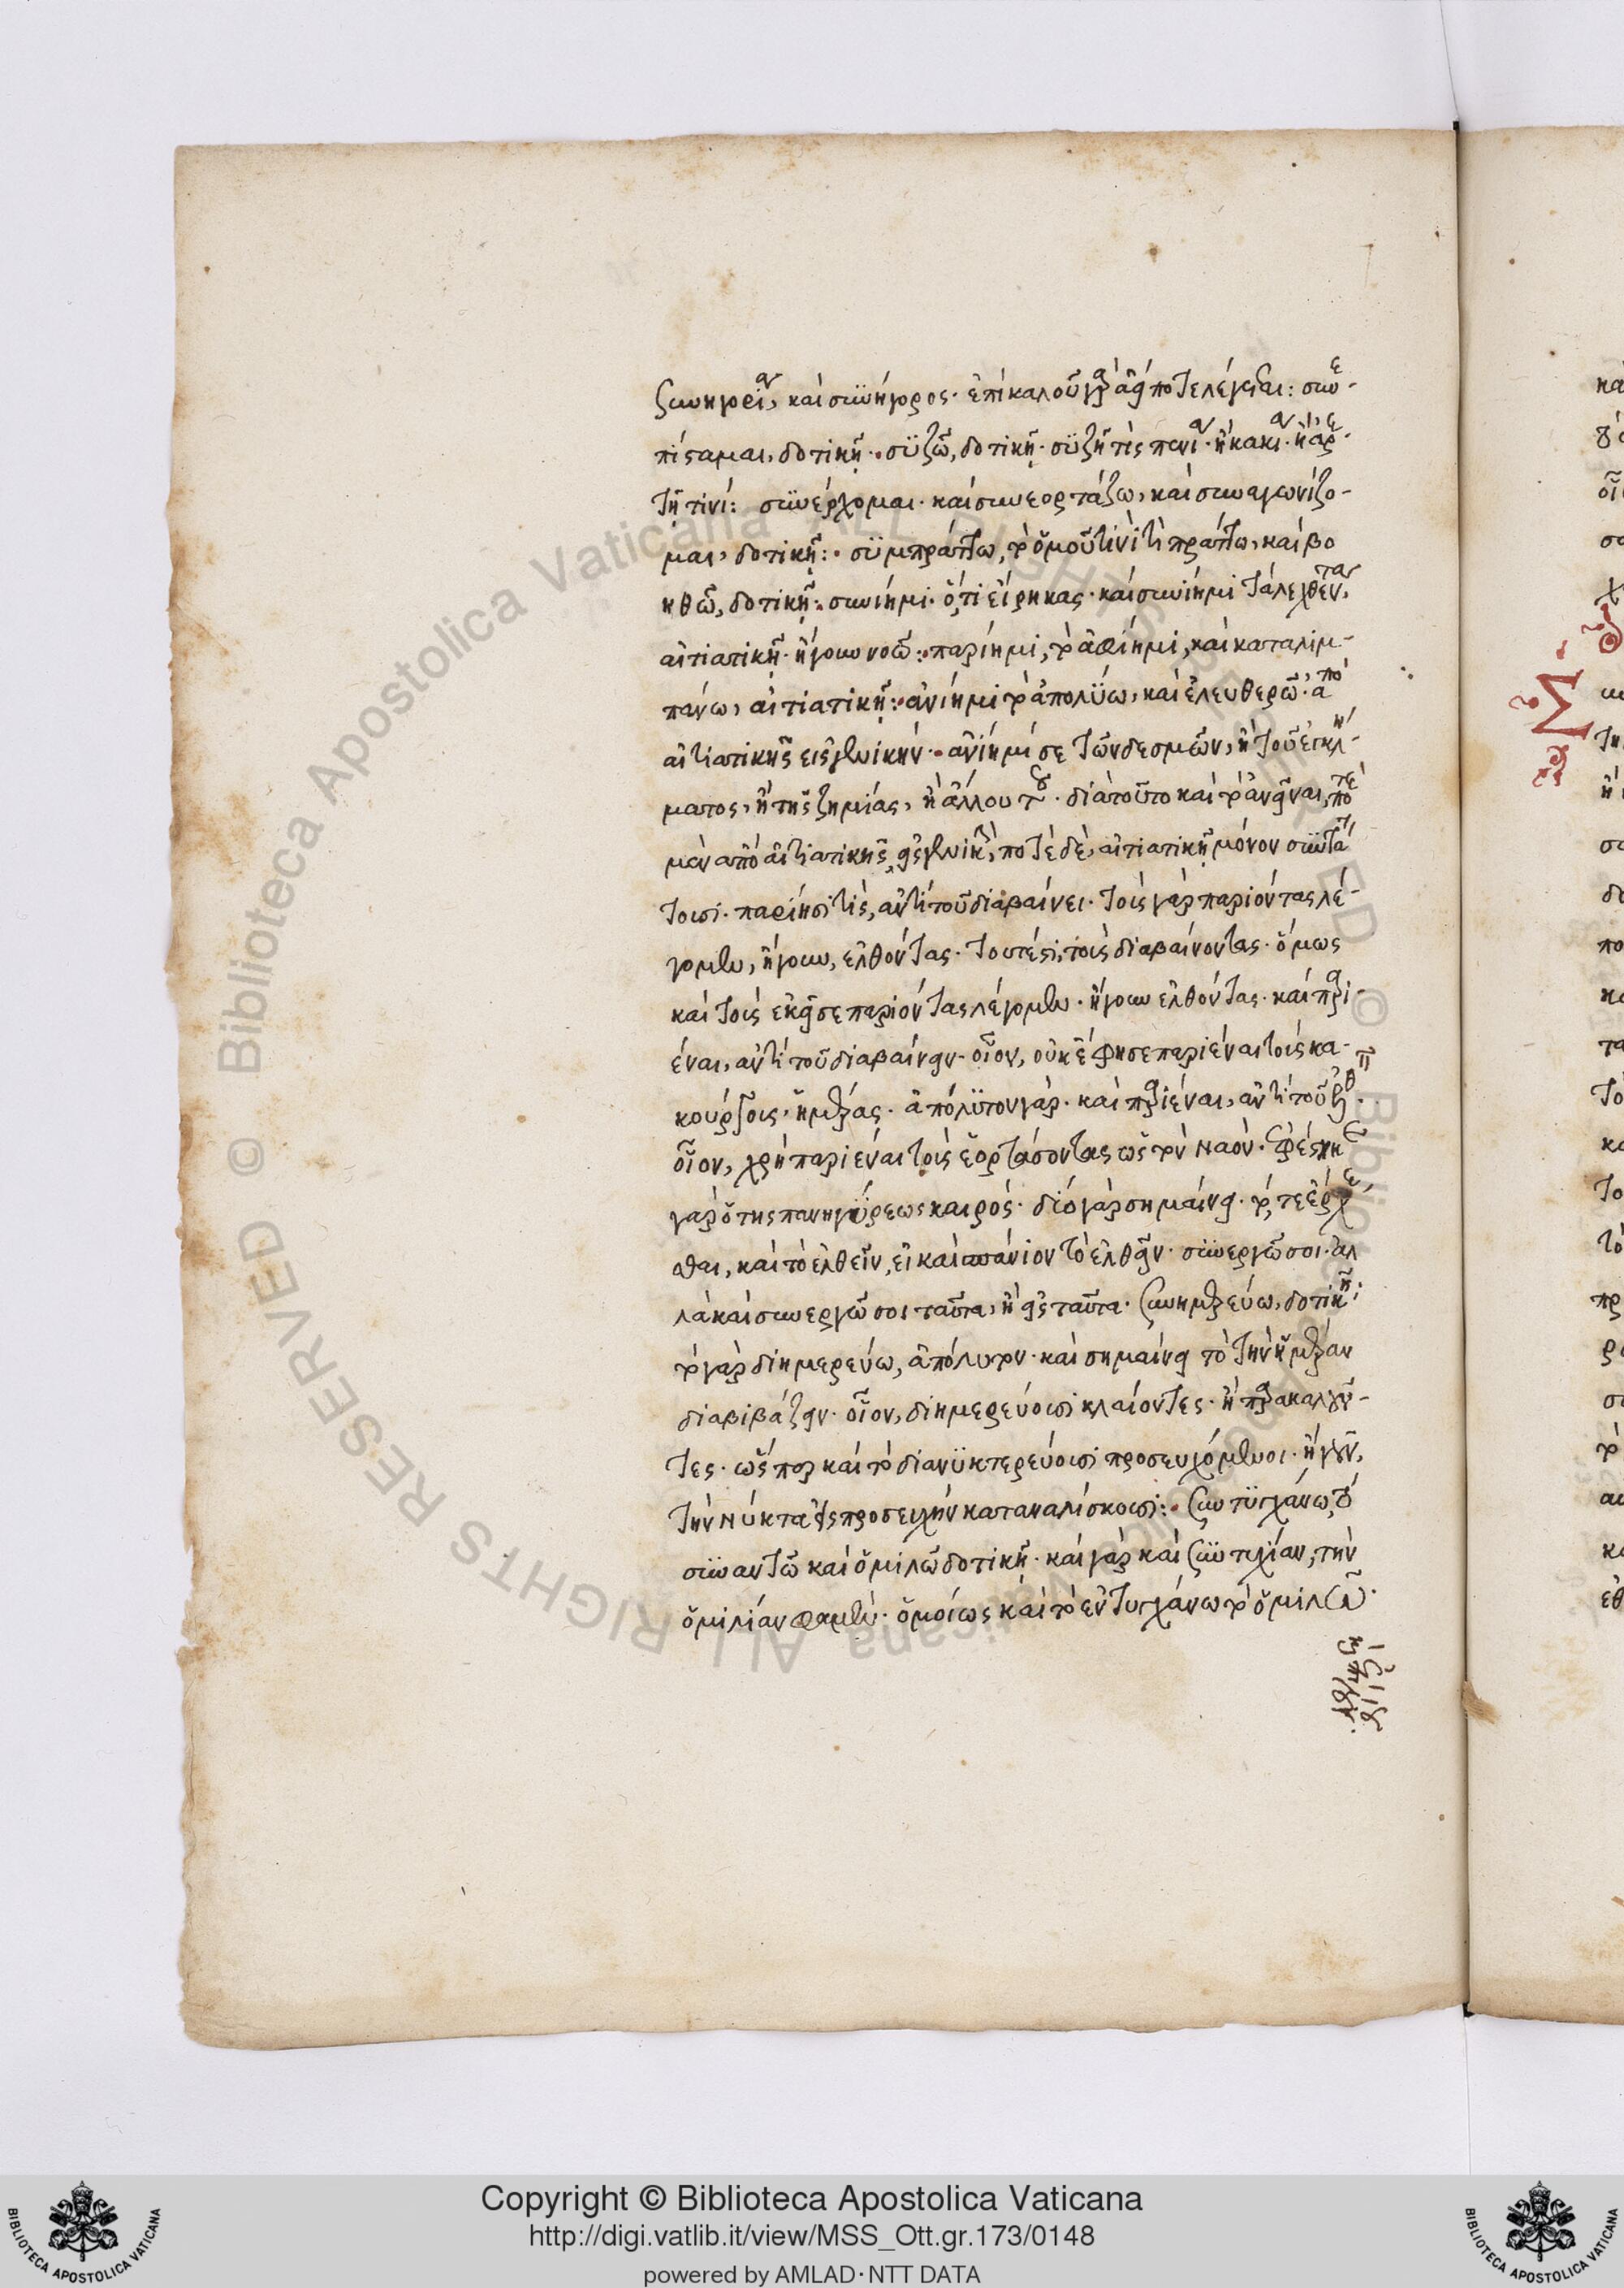 συνηγορίαν, καὶ συνήγορος. ἐπὶ καλοῦ γὰρ ἀεί ποτε λέγεται: συνε-
πίσταμαι, δοτικῇ. συζῶ, δοτικῇ. συζῇ τίς πενίαν. ἢ κακίαν. ἢ ἀρε-
τῇ τινί: συνέρχομαι. καὶ συνεορτάζω, καὶ συναγωνίζο-
μαι, δοτικῇ: συμπράττω, τὸ ὁμοῦ τινί τι πράττω, καὶ βο
ηθῶ, δοτικῇ: συνίημι. ὅ,τι εἴρηκας. καὶ συνίημι τὰ λεχθέντα,
αἰτιατικῇ. ἤγουν νοῶ: παρίημι, τὸ ἀφίημι, καὶ καταλιμ-
πάνω, αἰτιατικῇ: ἀνίημι τὸ ἀπολύω, καὶ ἐλευθερῶ. ἀπὸ
αἰτιατικῆς εἰς γενικήν. ἀνίημί σε τῶν δεσμῶν, ἢ τοῦ ἐγκλή-
ματος, ἢ τῆς ζημίας, ἢ ἄλλου του. διὰ τοῦτο καὶ τὸ ἀνεῖναι, ποτὲ
μὲν ἀπὸ αἰτιατικῆς εἰς γενικήν, ποτὲ δὲ, αἰτιατικῇ μόνον συντάτ
τουσι. παρίησί τις, ἀντὶ τοῦ διαβαίνει. τοὺς γὰρ παριόντας λέ-
γομεν, ἤγουν, ἐλθόντας. τουτέστι, τοὺς διαβαίνοντας. ὅμως
καὶ τοὺς ἐκεῖσε παριόντας λέγομεν. ἤγουν ἐλθόντας. καὶ παρι-
έναι, ἀντὶ τοῦ διαβαίνειν. οἷον, οὐκ ἔφησε παριέναι τοὺς κα-
κούργους. ἡμέρας. ἀπόλυτον γάρ. καὶ παριέναι, ἀντὶ τοῦ
οἷον, χρὴ παριέναι τοὺς ἑορτάσοντας ὡς τὸν ναόν. ἐφέστηκε
γὰρ ὁ τῆς πανηγύρεως καιρός. δύο γὰρ σημαίνει. τό, τε ἔρχε
σθαι, καὶ τὸ ἐλθεῖν, εἰ καὶ σπάνιον τὸ ἐλθεῖν. συνεργῶ σοι. ἀλ
λὰ καὶ συνεργῶ σοι ταῦτα, ἢ εἰς ταῦτα. συνημερεύω, δοτικῇ:
τὸ γὰρ διημερεύω, ἀπόλυτον. καὶ σημαίνει τὸ τὴν ἡμέραν
διαβιβάζειν. οἷον, διημερεύουσι κλαίοντες. ἢ παρακαλοῦν-
τες. ὥσπερ καὶ τὸ διανυκτερεύουσι προσευχόμενοι. ἤγουν,
τὴν νύκτα εἰς προσευχὴν καταναλίσκουσι: συντυγχάνω, τὸ
συναντῶ καὶ ὁμιλῶ δοτικῇ. καὶ γὰρ καὶ συντυχίαν, τὴν
ὁμιλίαν φαμέν. ὁμοίως καὶ τὸ ἐντυγχάνω τὸ ὁμιλῶ.
Copyright © Biblioteca Apostolica Vaticana
http://digi.vatlib.it/view/MSS_Ott.gr.173/0148
powered by AMLAD·NTT DATA